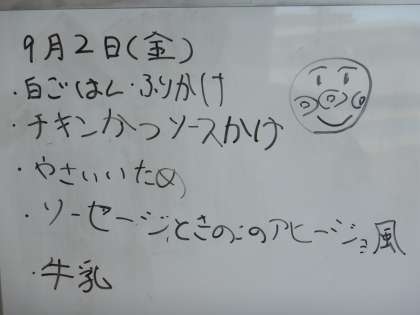 9月2日(金)
・白ごはん・ふりかけ
・チキンかつソースかけ
・やさいいため
・ソーセージときのこのアヒージョ風
・牛乳